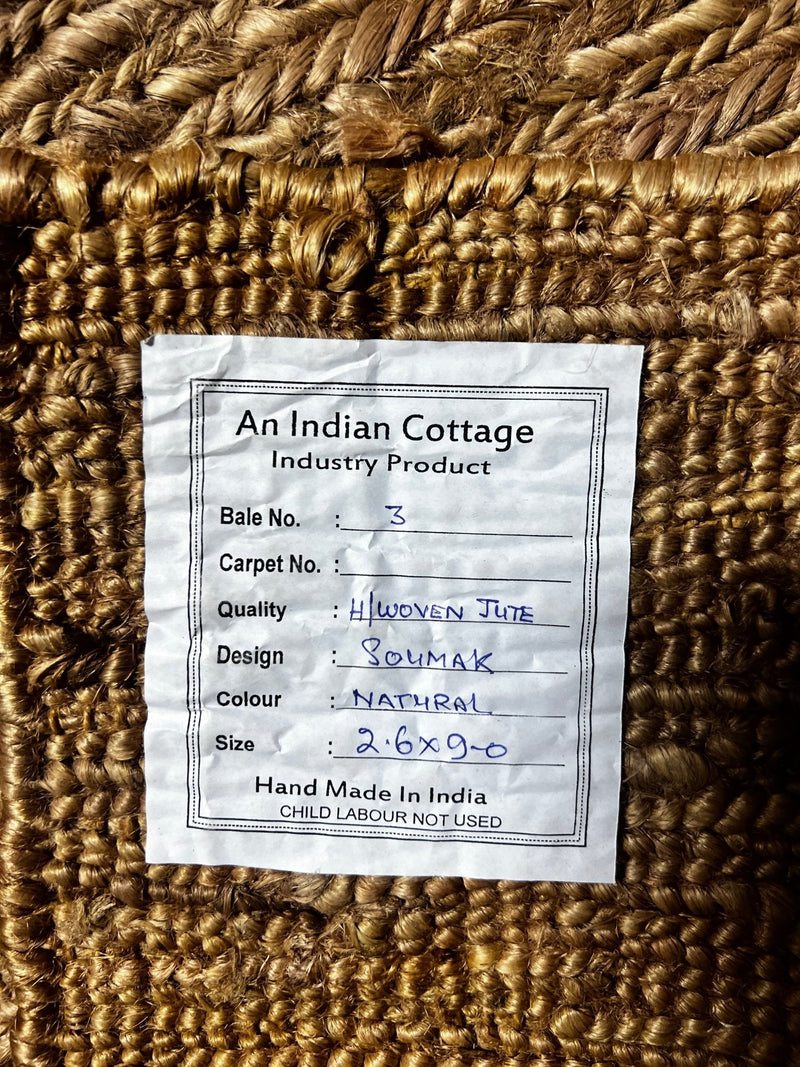 An Indian Cottage
Industry Product
Bale No. : 3
Carpet No. :
Quality : H/WOVEN JUTE
Design : SOUMAK
Colour : NATURAL
Size : 2.6x9-0
Hand Made In India
CHILD LABOUR NOT USED